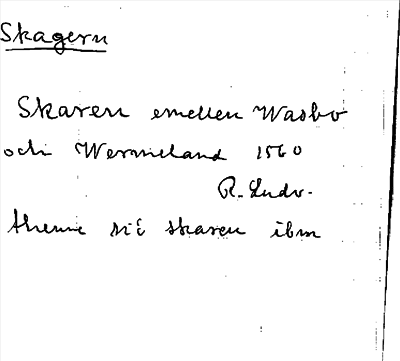 Skagern
Skaren emellen Wasbo
och Wermeland 1560
R. Ludv.
thenne siö skaren ibm